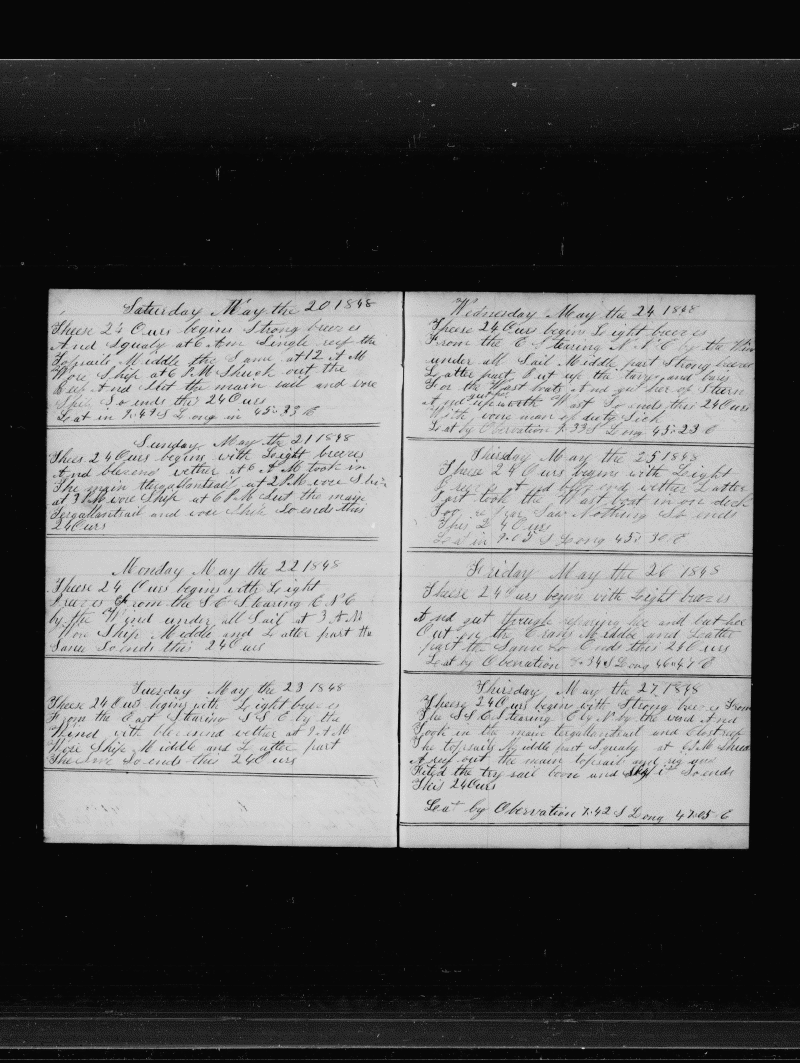 Saturday May the 20 1848
Theese 24 Ours begins Strong breezes
And Squaly at 6 Am Single reef the
Topsails Middle the Same at 12 A M
Wore Ship at 6 P M Shuck out the
Reef And Sut the main sail and wore
Ship So ends the 24 Ours
Lat in 7:47 S Long in 45:33 E
Sunday May the 21 1848
Thees 24 Ours begins with Leight breezes
And vether at 6 A M took in
The main at 2 P M wore Ship
at 3 P M wore Ship at 6 P M Sut the main
and wore Ship So ends this
24 Ours
Monday May the 22 1848
Theese 24 Ours begins with Leight
Breezes From the S E Stearing E N E
by the Wind under all Sail at 3 A M
Wore Ship Middle and Latter part the
Same So ends this 24 Ours
Tuesday May the 23 1848
Theese 24 Ours begins with Leight breezes
From the East Stearing S S E by the
Wind with vether at 9 A M
Wore Ship Middle and Latter part
The Same So ends this 24 Ours
Wednesday May the 24 1848
Theese 24 Ours begins Leight breezes
From the E Stearing N N E by the Win
under all Sail Middle part Strong breezes
Latter part Put up the and
For the Wast boat And Stearn
And Wast So ends this 24 Ours
With one man of duty Sick
Lat by Obervation 7:33 S Long 45:23 E
Thirsday May the 25 1848
Theese 24 Ours begins with Leight
breezes and vether Latter
Part took the Wast boat in on deck
For Saw Nothing So ends
This 24 Ours
Lat in 9:05 S Long 45:30 E
Friday May the 26 1848
Theese 24 Ours begins with Leight breezes
And got through and
Out on the Middle and Latter
part the Same So Ends this 24 Ours
Lat by Obervation 8:34 S Long 46:47 E
Thirsday May the 27 1848
Theese 24 Ours begin with Strong breezes From
The S S E Stearing E by N by the wind And
Took in the main and Clost reef
The topsails Middle part Squaly at 6 P M
A reef out the main topsail and
Fited the try sail boom and it So ends
This 24 Ours
Lat by Obervation 7:42 S Long 47:05 E